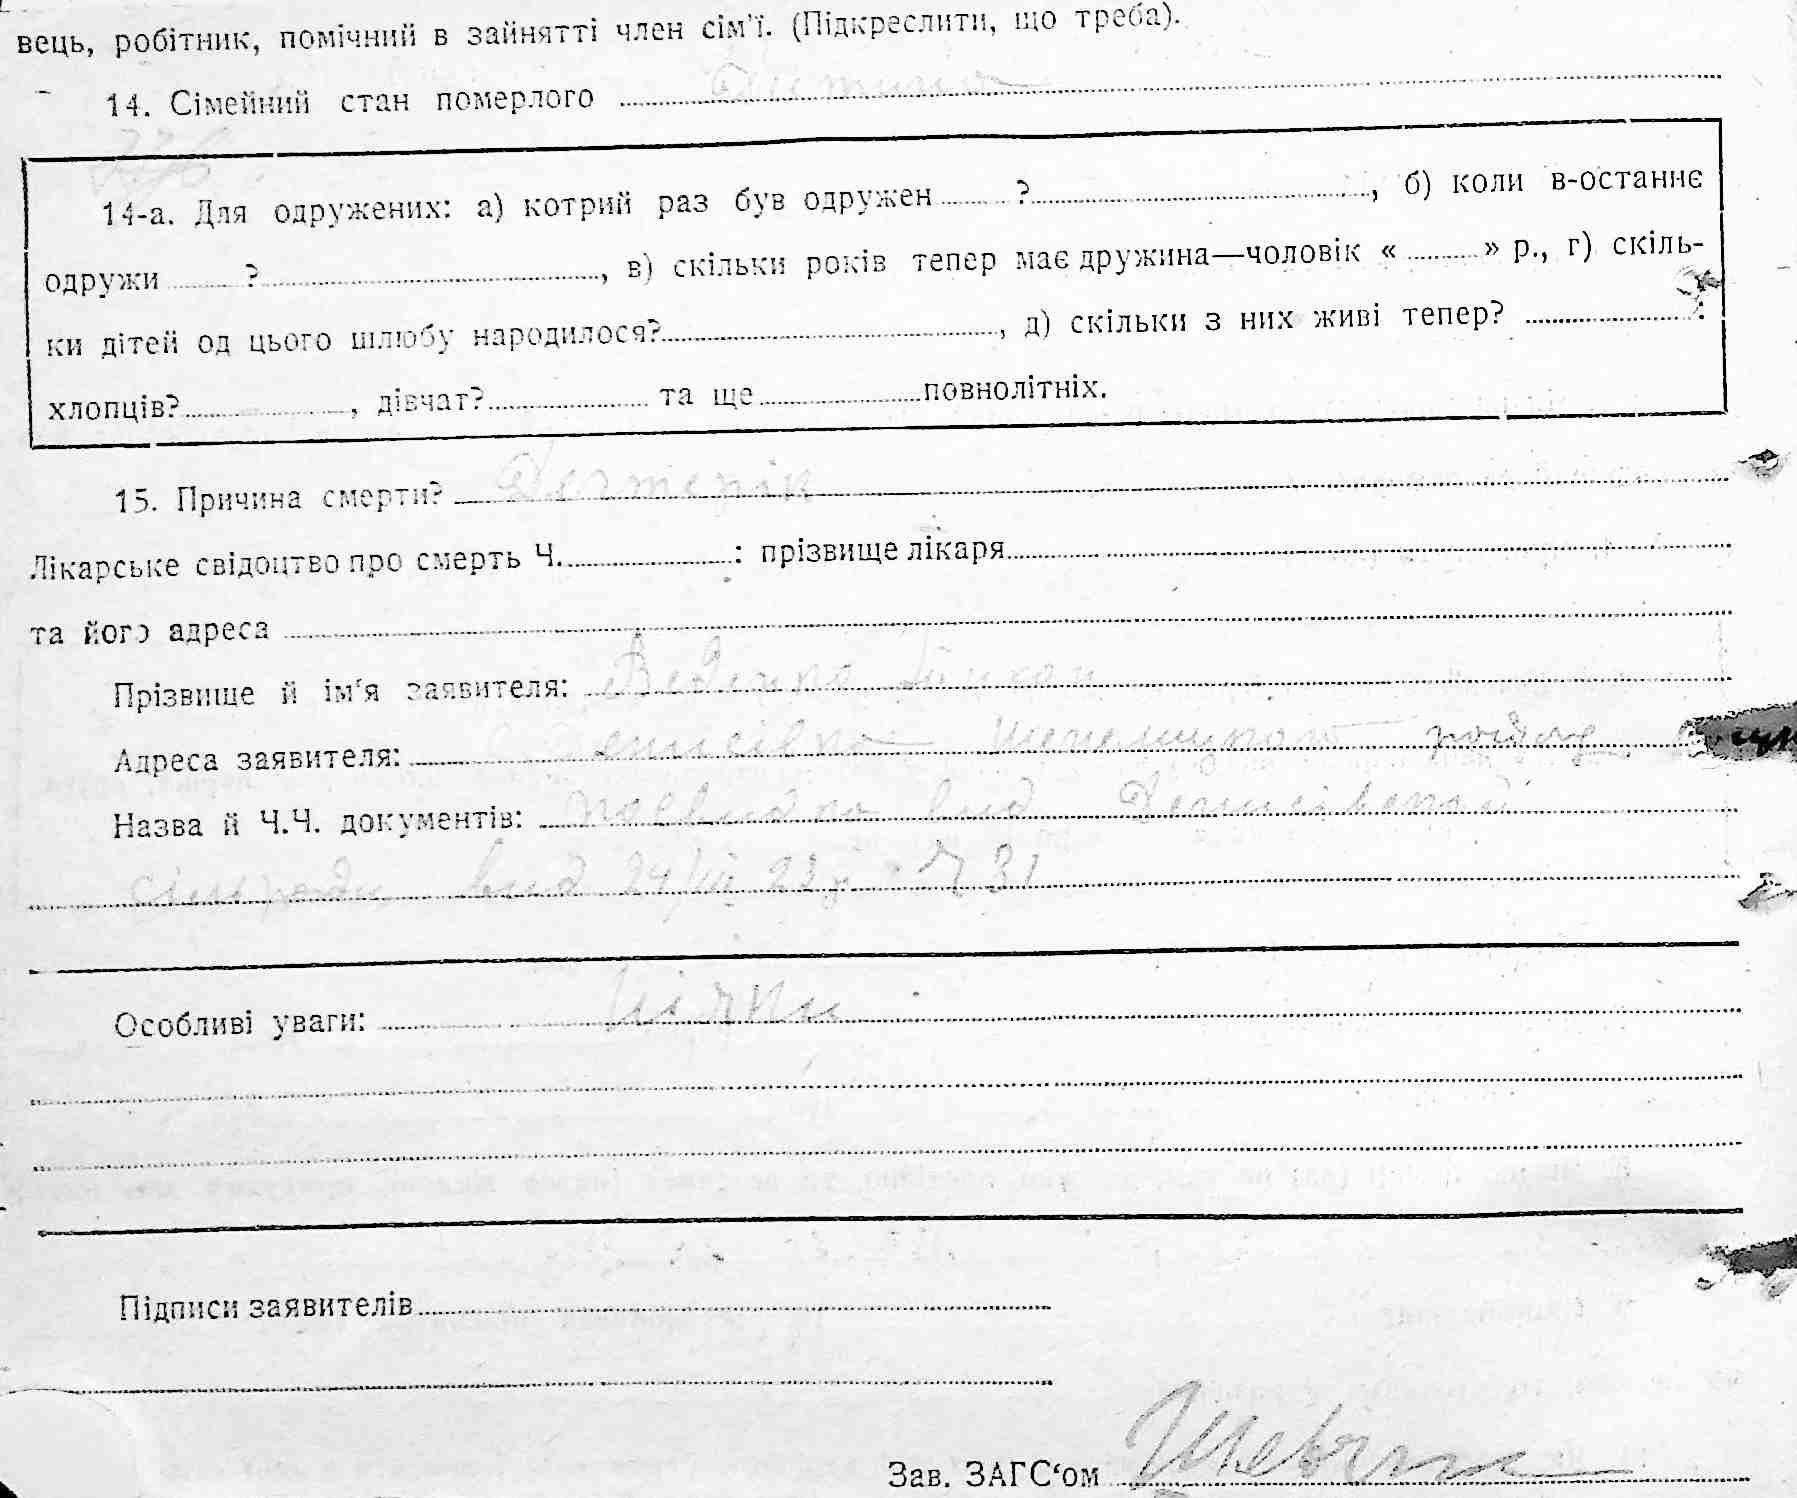 вець, робітник, помічний в зайнятті член сім'ї. (Підкреслити, що треба).
14. Сімейний стан померлого Дитина
14-а. Для одружених: а) котрий раз був одружен ? , б) коли в-останнє
одружи ? , в) скільки років тепер має дружина—чоловік « » р., г) скіль-
ки дітей од цього шлюбу народилося? , д) скільки з них живі тепер? :
хлопців? , дівчат? та ще повнолітніх.
15. Причина смерти?
Лікарське свідоцтво про смерть Ч. : прізвище лікаря
та його адреса
Прізвище й ім'я заявителя:
Адреса заявителя: с. Денисівка
Назва й Ч.Ч. документів: посвидка вид Денисівской
сільради вид 24/VII 22 р Ч 31
Особливі уваги:
Підписи заявителів
Зав. ЗАГС'ом